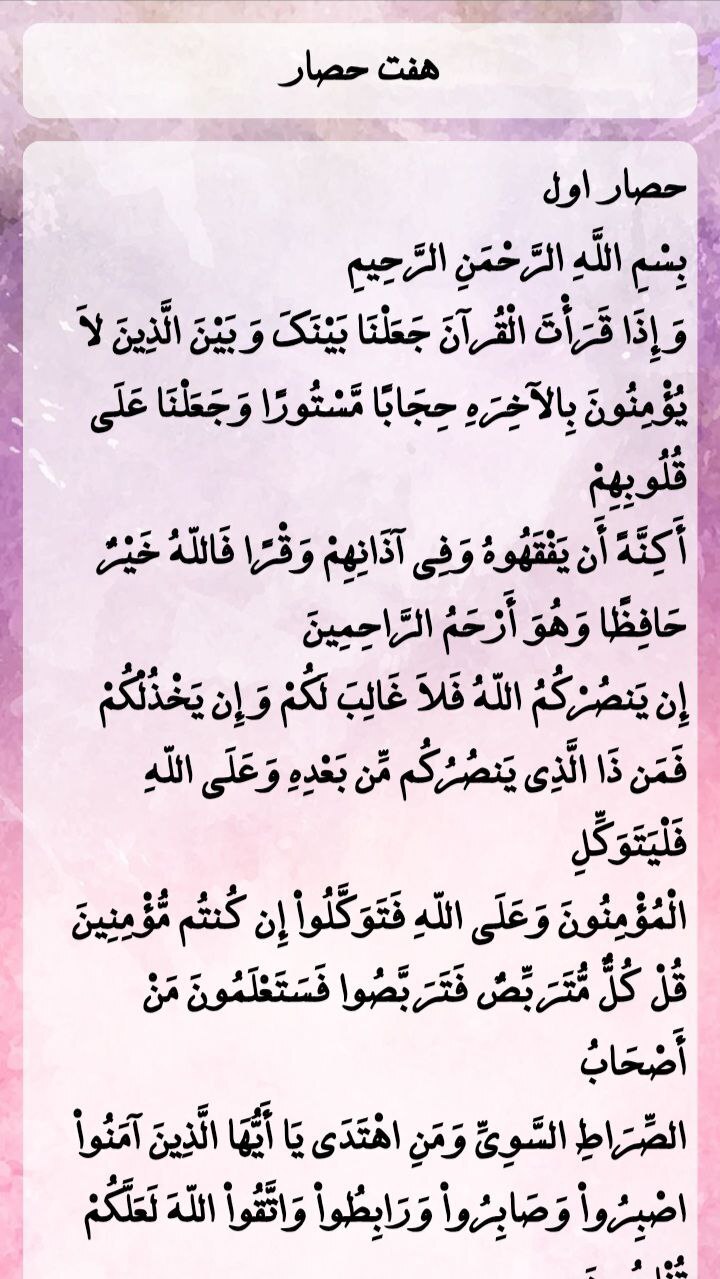 هفت حصار
حصار اول
بِسْمِ اللَّهِ الرَّحْمَنِ الرَّحِيمِ
وَإِذَا قَرَأْتَ الْقُرآنَ جَعَلْنَا بَيْنَکَ وَبَيْنَ الَّذِينَ لاَ
يُؤْمِنُونَ بِالآخِرَهِ حِجَابًا مَّسْتُورًا وَجَعَلْنَا عَلَى
قُلُوبِهِمْ
أَكِنَّهً أَن يَفْقَهُوهُ وَفِى آذَانِهِمْ وَقْرًا فَاللّهُ خَيْرٌ
حَافِظًا وَهُوَ أَرْحَمُ الرَّاحِمِينَ
إِن يَنصُرْكُمُ اللّهُ فَلاَ غَالِبَ لَكُمْ وَإِن يَخْذُلْكُمْ
فَمَن ذَا الَّذِى يَنصُرُكُم مِّن بَعْدِهِ وَعَلَى اللّهِ
فَلْيَتَوَكِّلِ
الْمُؤْمِنُونَ وَعَلَى اللّهِ فَتَوَكَّلُواْ إِن كُنتُم مُّؤْمِنِينَ
قُلْ كُلٌّ مُّتَرَبِّصٌ فَتَرَبَّصُوا فَسَتَعْلَمُونَ مَنْ
أَصْحَابُ
الصِّرَاطِ السَّوِىِّ وَمَنِ اهْتَدَى يَا أَيُّهَا الَّذِينَ آمَنُواْ
اصْبِرُواْ وَصَابِرُواْ وَرَابِطُواْ وَاتَّقُواْ اللّهَ لَعَلَّكُمْ